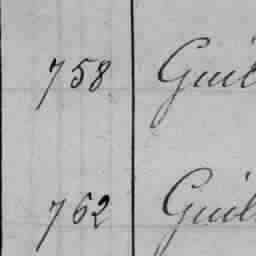 758 Guil
762 Guil